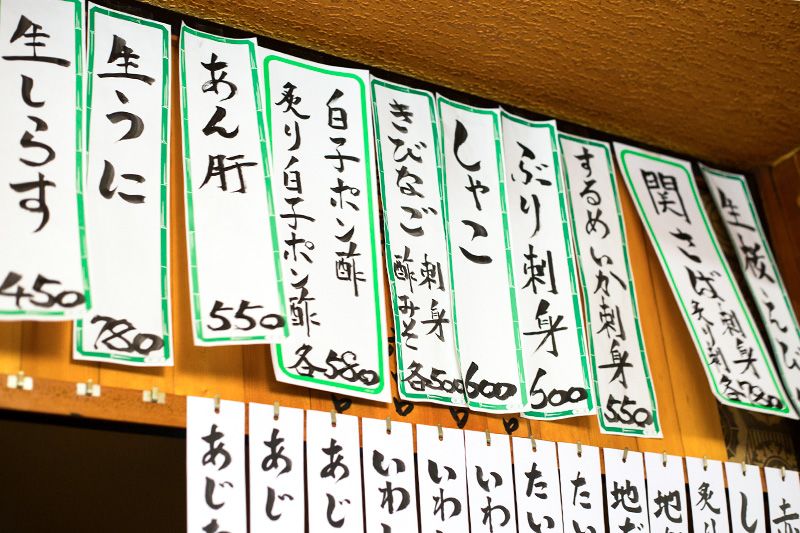 生しらす
450
生うに
780
あん肝
550
白子ポン酢
炙り白子ポン酢
各580
きびなご刺身
酢みそ
各500
しゃこ
600
ぶり刺身
600
するめいか刺身
550
関さば刺身
炙り刺
各780
生
えび
あじた
あじ
あじ
いわし
いわし
いわ
たい
たい
地だ
地
炙り
し
赤